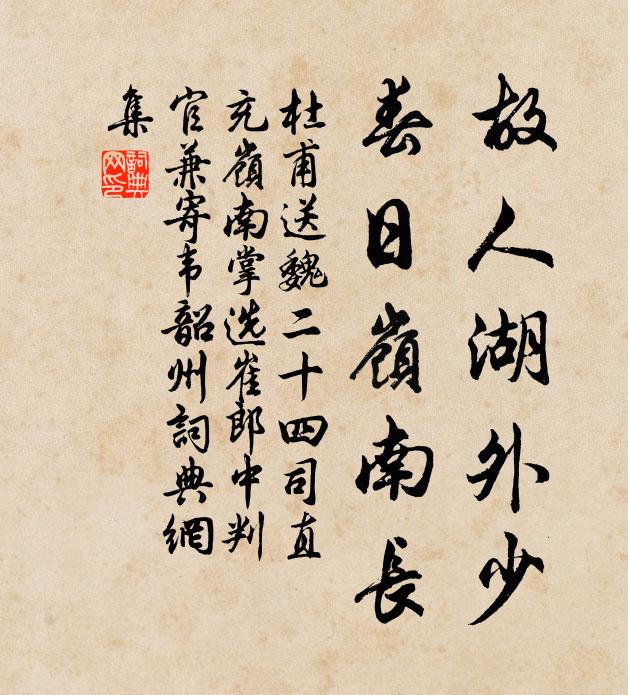 故人湖外少
春日嶺南長
杜甫送魏二十四司直
充嶺南掌选崔郎中判
官兼寄韦韶州詞典網
集
詞典
网印